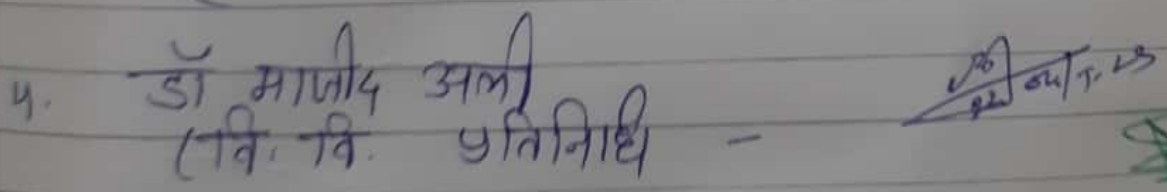 ५. डॉ माजीद अली
(वि. वि. प्रतिनिधी -